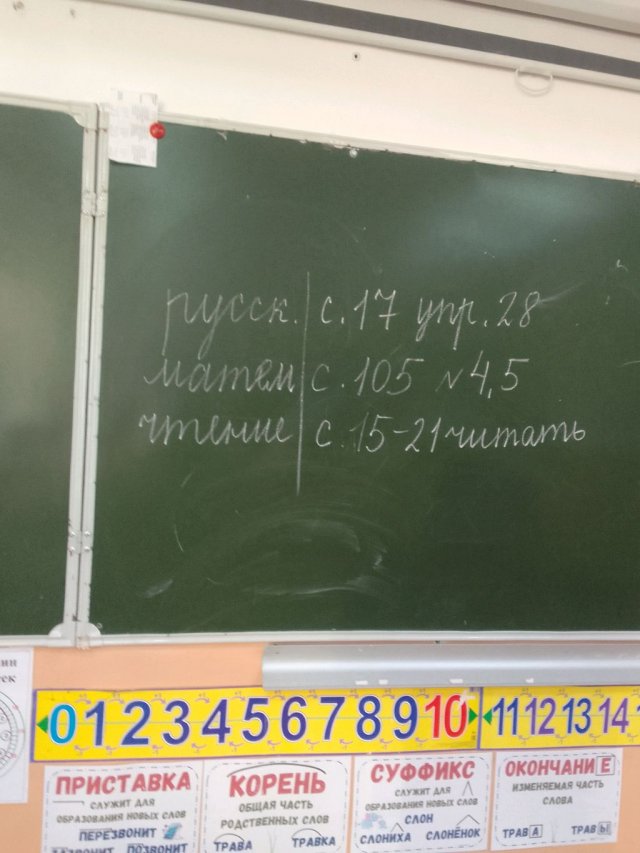 русск. с. 17 упр. 28
матем с. 105 № 4,5
чтение с. 15-21 читать
0 1 2 3 4 5 6 7 8 9 10 11 12 13 14
ПРИСТАВКА
СЛУЖИТ ДЛЯ
ОБРАЗОВАНИЯ НОВЫХ СЛОВ
ПЕРЕЗВОНИТ
ПОЗВОНИТ
КОРЕНЬ
ОБЩАЯ ЧАСТЬ
РОДСТВЕННЫХ СЛОВ
ТРАВА ТРАВКА
СУФФИКС
СЛУЖИТ ДЛЯ
ОБРАЗОВАНИЯ НОВЫХ СЛОВ
СЛОН
СЛОНИХА СЛОНЁНОК
ОКОНЧАНИЕ
ИЗМЕНЯЕМАЯ ЧАСТЬ
СЛОВА
ТРАВА ТРАВЫ